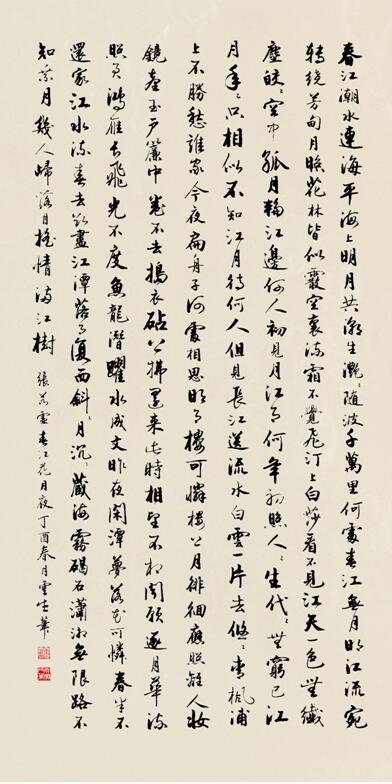 春江潮水連海平海上明月共潮生灩〻隨波千萬里何處春江無月明江流宛
轉繞芳甸月照花林皆似霰空裏流霜不覺飛汀上白沙看不見江天一色無纖
塵皎〻空中孤月輪江邊何人初見月江月何年初照人〻生代〻無窮已江
月年〻只相似不知江月待何人但見長江送流水白雲一片去悠〻青楓浦
上不勝愁誰家今夜扁舟子何處相思明月樓可憐樓上月徘徊應照離人妝
鏡臺玉戶簾中卷不去搗衣砧上拂還來此時相望不相聞願逐月華流
照君鴻雁長飛光不度魚龍潛躍水成文昨夜閑潭夢落花可憐春半不
還家江水流春去欲盡江潭落月復西斜〻月沉〻藏海霧碣石瀟湘無限路不
知乘月幾人歸落月搖情滿江樹 張若虛春江花月夜丁酉春月雲生筆